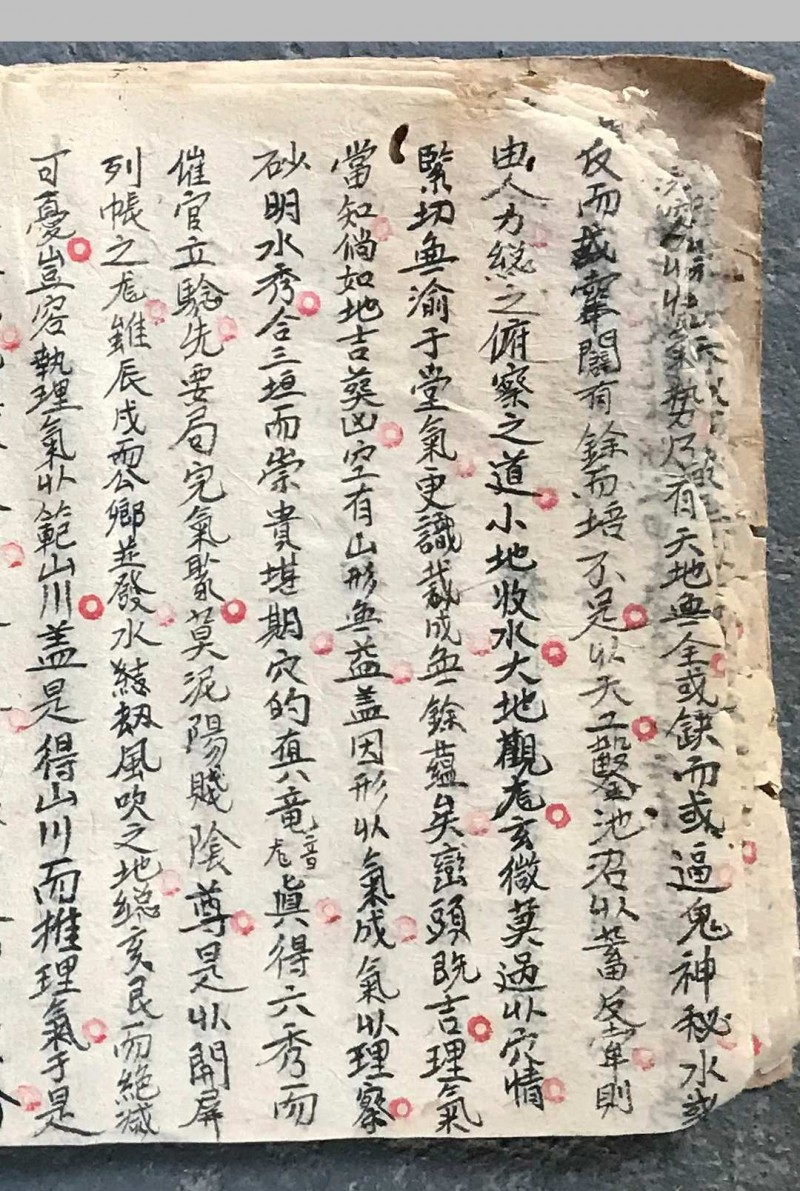 氣勢 有天地無全或缺而或逼鬼神秘水或
反而 有餘而培不足以天工鑿池沼以蓄反 則
由人力総之俯察之道小地收水大地觀龙玄微莫過以穴情
緊切無渝于堂氣更識裁成無餘蘊矣巒頭既言理氣
當知倘如地吉葵凶空有山形無益盖因形以氣成氣以理察
砂明水秀合三垣而崇貴堪期穴的真竜音龙眞得六秀而
催官立騐先要局完氣聚莫泥陽賤陰尊是以開屏
列帳之龙雖辰戌而公鄉並發水 劫風吹之地総亥艮而絶滅
可憂豈容執理氣以範山川盖是得山川而推理氣于是